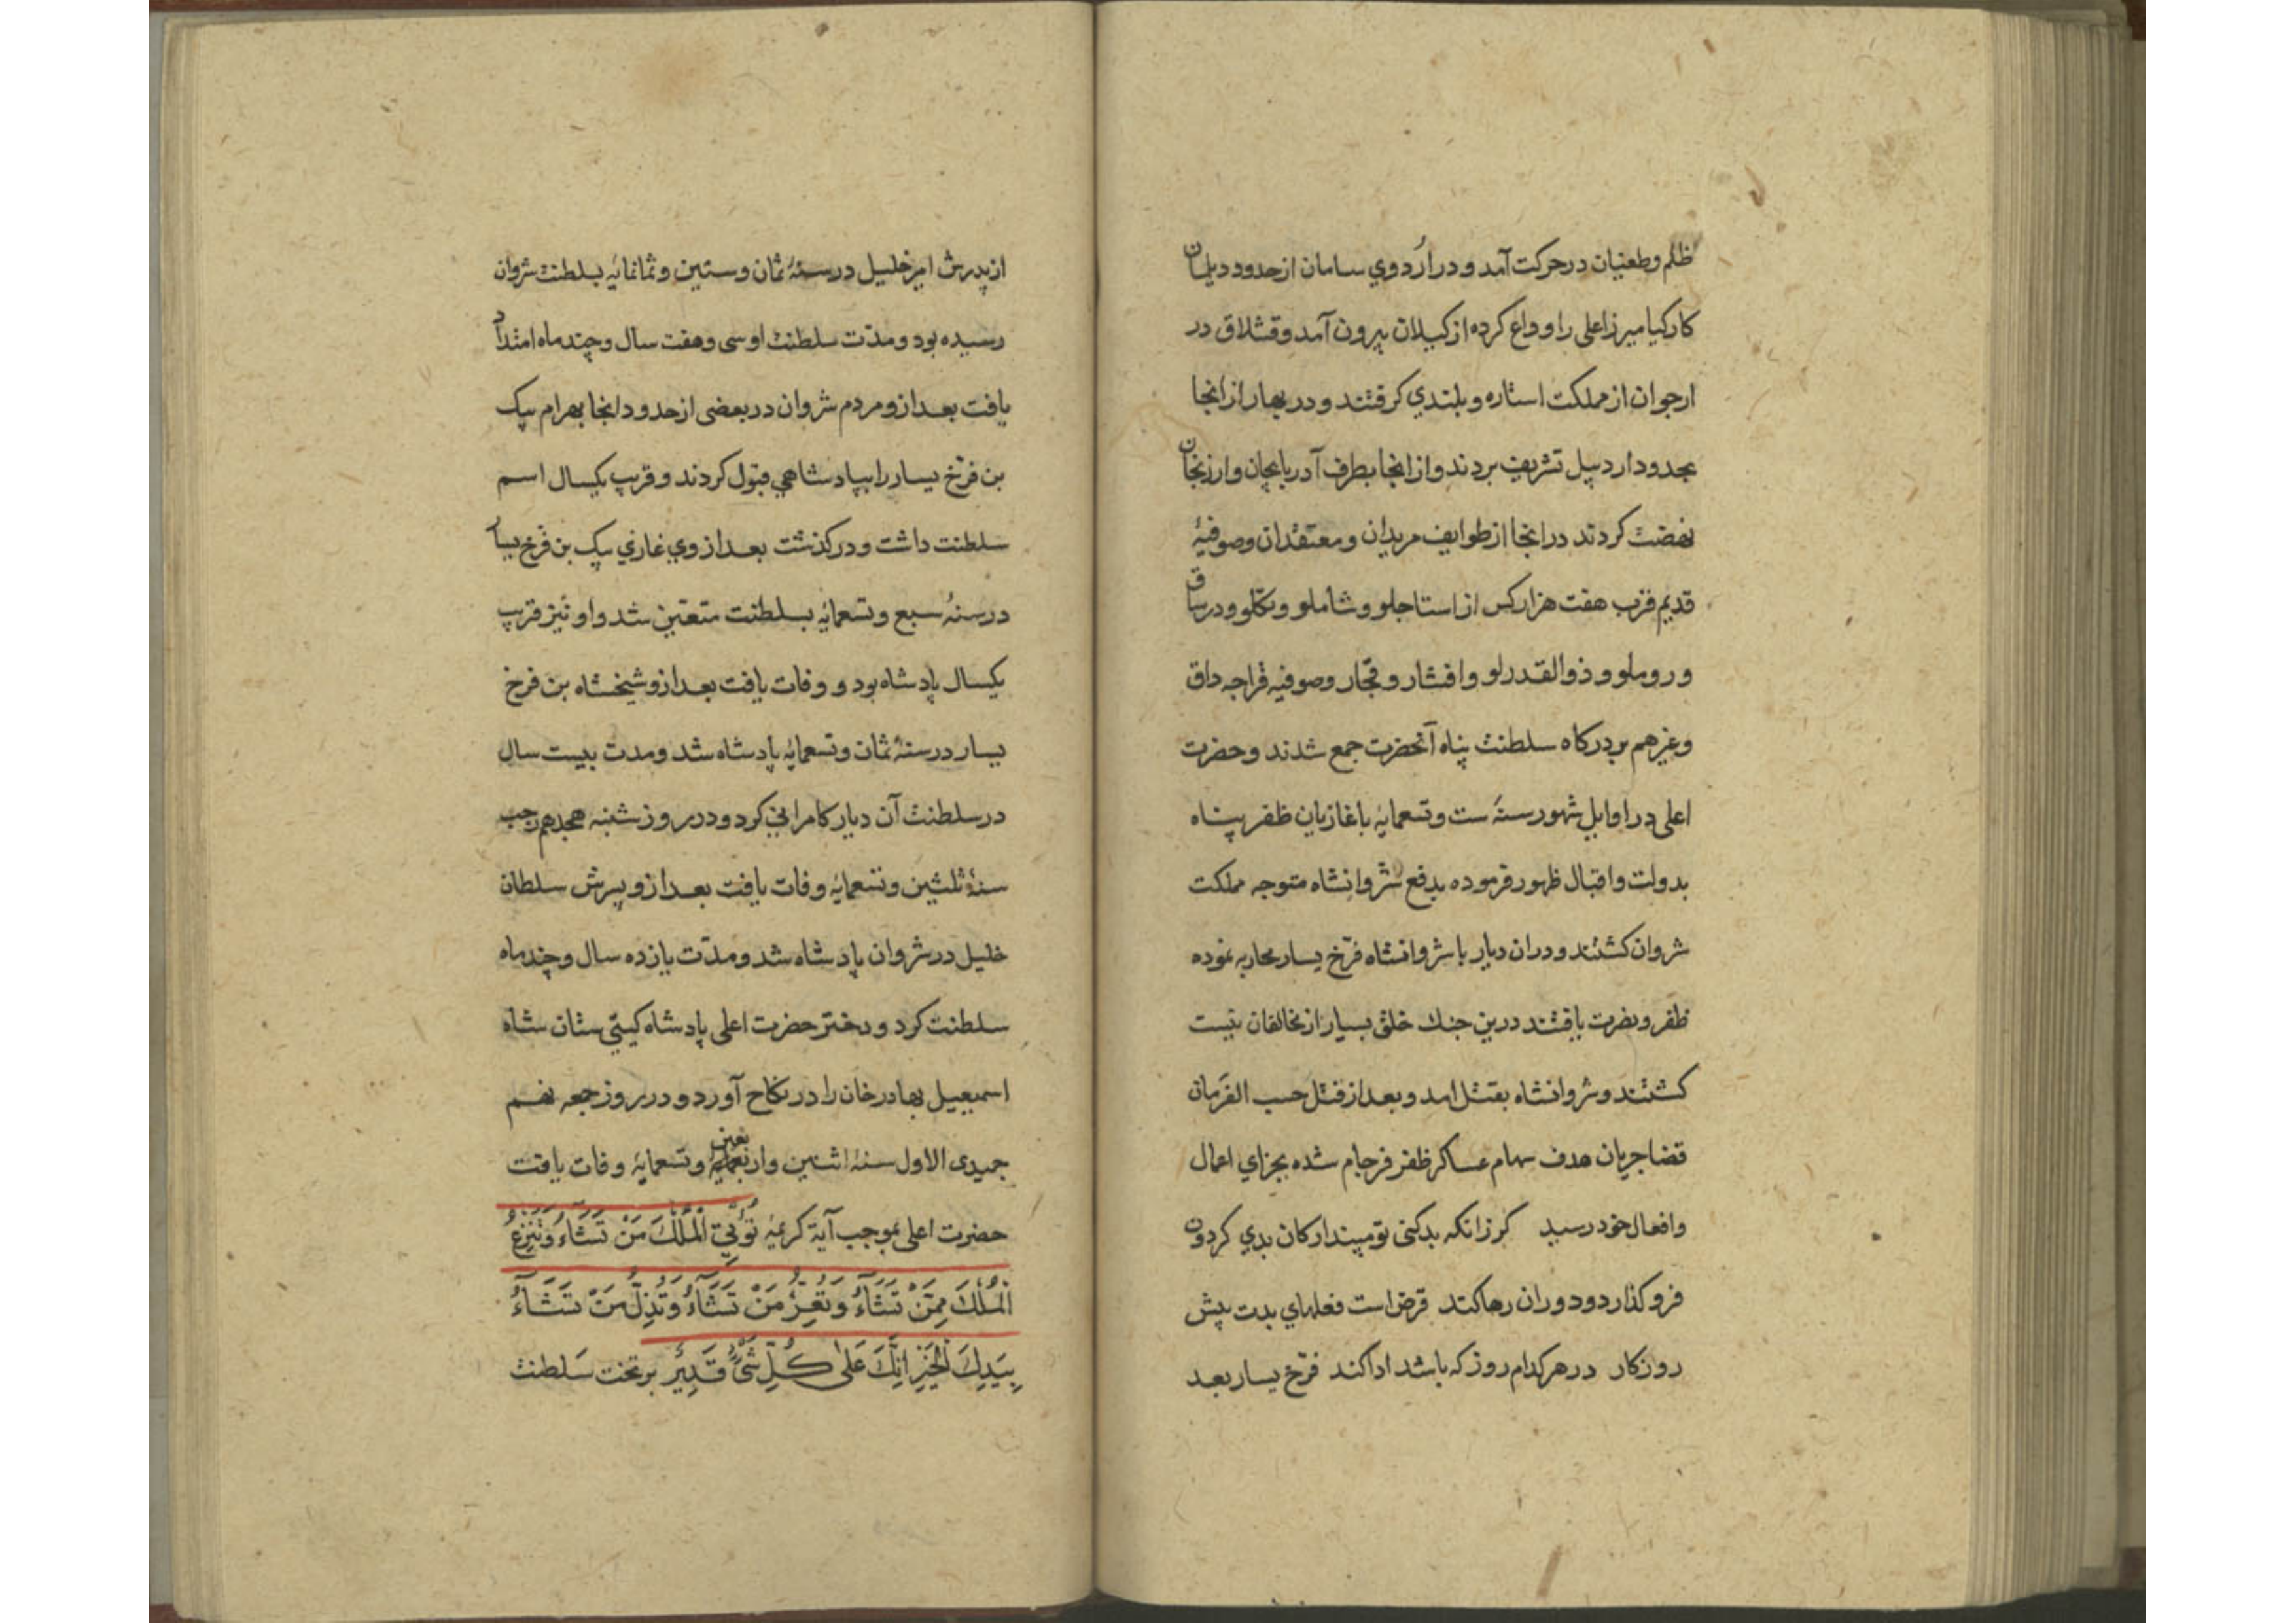 ظلم وطغیان درحرکت آمد و در اردوي سامان از حدود دیلمان
کارکیا میرزاعلی را وداع کرده از کیلان بیرون آمد و قشلاق در
ارجوان از مملکت استاره وبلندي کرفتند و در بهار از انجا
بحدود اردبیل تشریف بردند و از انجا بطرف آدربایجان وارزنجان
نهضت کردند در انجا از طوایف مریدان و معتقدان وصوفیۀ
قدیم قرب هفت هزار کس از استاجلو و شاملو و تکلو و درساق
و روملو و ذوالقدرلو و افشار و قجار وصوفیه قراجه داق
وغیرهم بردرکاه سلطنت پناه آنحضرت جمع شدند و حضرت
اعلی در اوایل شهور سنۀ ست وتسعمایۀ باغازیان ظفر پناه
بدولت واقبال ظهور فرموده بدفع شروانشاه متوجه مملکت
شروان کشتند و دران دیار با شروانشاه فرّخ یسار محاربه نموده
ظفر و نصرت یافتند درین جنك خلق بسیار از مخالفان نیست
کشتند و شروانشاه بقتل امد و بعد از قتل حسب الفرمان
قضا جریان هدف سهام عساکر ظفر فرجام شده بجزاي اعمال
وافعال خود رسید کرزانکه بدکنی تو مپندار کان بدي کردون
فرو کذارد و دوران رها کند قرض است فعلهاي بدت پیش
روزکار در هر کدام روز که باشد ادا کند فرّخ یسار بعد
از پدرش امیر خلیل در سنۀ ثمان وستین وثمانمایۀ بسلطنت شروان
رسیده بود و مدّت سلطنت او سی وهفت سال و چند ماه امتداد
یافت بعد ازو مردم شروان در بعضی از حدود انجا بهرام بیک
بن فرّخ یسار را بپادشاهي قبول کردند و قریب یکسال اسم
سلطنت داشت و درکذشت بعد از وي غازي بیک بن فرّخ یسار
در سنۀ سبع وتسعمایۀ بسلطنت متعیّن شد و او نیز قریب
یکسال پادشاه بود و وفات یافت بعد ازو شیخشاه بن فرخ
یسار در سنۀ ثمان وتسعمایۀ پادشاه شد ومدت بیست سال
در سلطنت آن دیار کامرانی کرد و در روز شنبه هجدهم رجب
سنۀ ثلثین وتسعمایۀ وفات یافت بعد ازو پسرش سلطان
خلیل در شروان پادشاه شد ومدّت یازده سال و چند ماه
سلطنت کرد و دختر حضرت اعلی پادشاه کیتی ستان شاه
اسمعیل بهادر خان را در نکاح آورد و در روز جمعه نهم
جمیدی الاول سنۀ اثنین واربعین وتسعمایۀ وفات یافت
حضرت اعلی بموجب آیة کریمۀ تُؤْتِي الْمُلْكَ مَنْ تَشَآءُ وَتَنْزِعُ
الْمُلْكَ مِمَّنْ تَشَآءُ وَتُعِزُّ مَنْ تَشَآءُ وَتُذِلُّ مَنْ تَشَآءُ
بِيَدِكَ الْخَيْرُ اِنَّكَ عَلٰى كُلِّ شَيْءٍ قَدِيرٌ بر تخت سَلطنت